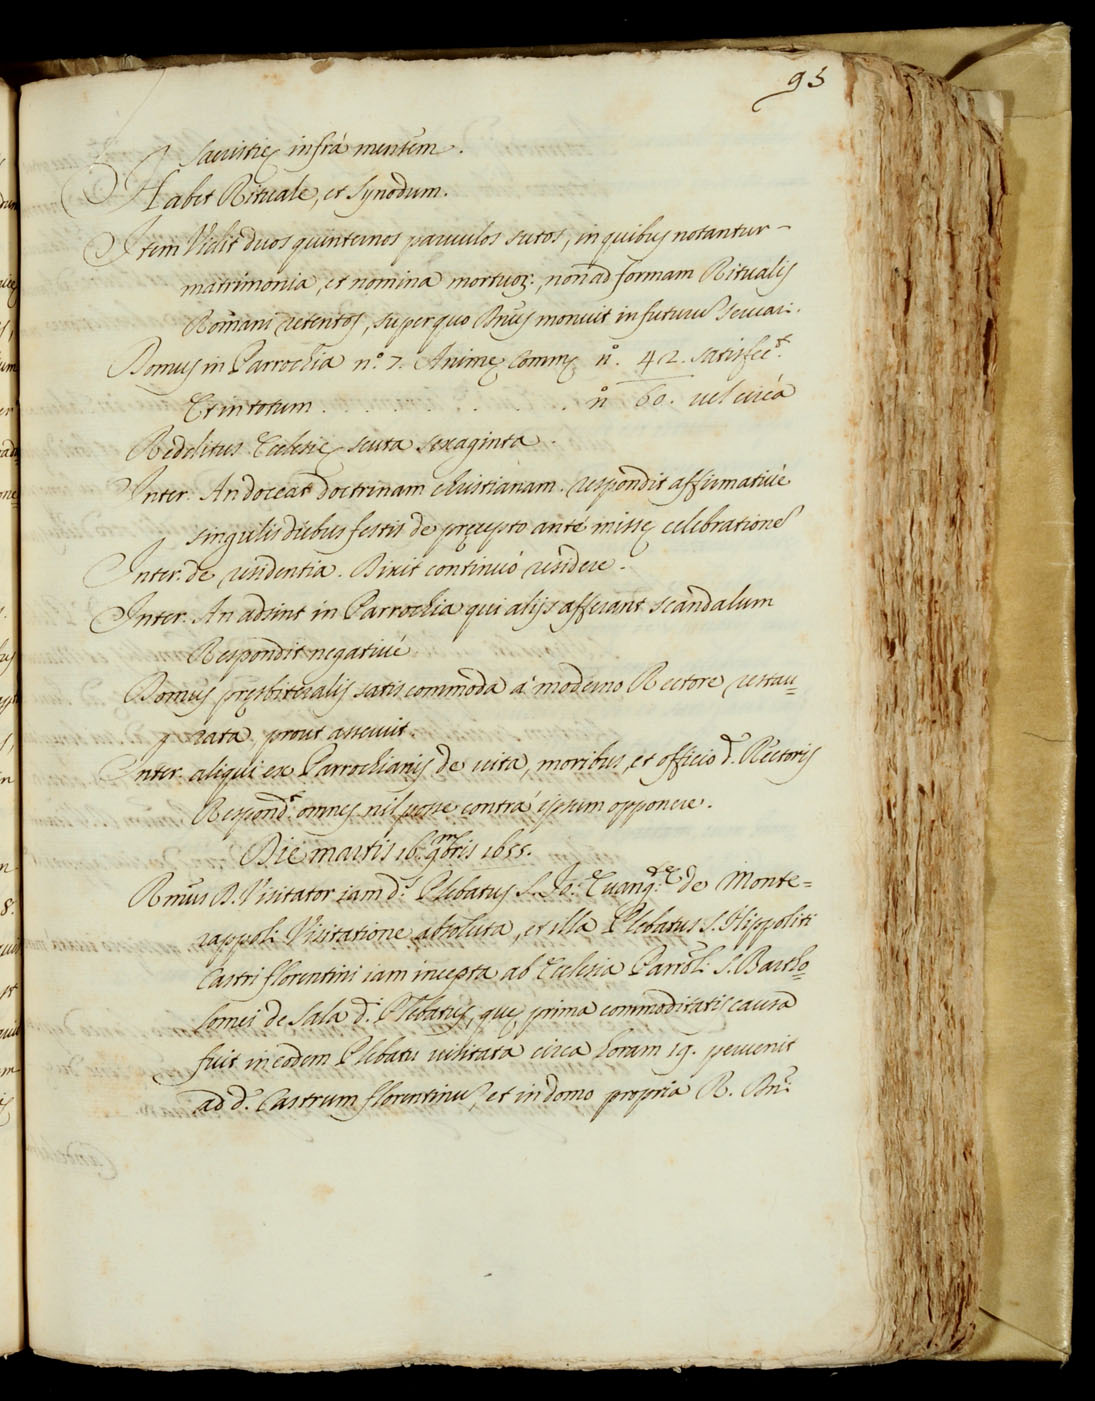 95
Sacristię infrà mensem.
Habet Rituale, et Synodum.
Item Vidit duos quinternos paruulos sutos, in quibus notantur
matrimonia, et nomina mortuoꝝ., non ad formam Ritualis
Romani retentos, super quo Dnus monuit in futurũ seruari.
Domus in Parrochia n.º 7. Animę Commę n.º 42. satisfec.t
Et in totum . . . . . . . n.º 60. uel circa
Redditus Ecclesię scuta sexaginta.
Inter. An doceat doctrinam christianam. respondit affirmatiuè
singulis diebus festis de pręcepto ante missę celebrationẽ
Inter. de residentia. Dixit continuò residere.
Inter. An adsint in Parrochia qui alijs afferant scandalum
Respondit negatiuè
Domus pręsbiteralis satis commoda à moderno Rectore restau=
rata prout asseruit.
Inter. aliqui ex Parrochianis de uita, moribus, et officio d. Rectoris
Respond.t omnes nil posse contrà ipsum opponere.
Die martis 16. 9mbris 1655.
Rmus D. Visitator iam d.i Plebatus S. Jo: Euang.ę de Monte=
rappoli Visitatione absoluta, et illa Plebatus S. Hippoliti
Castri florentini iam incepta ab Ecclesia Parroli. S. Bartho=
lomei de Sala d.i Plebatus, quę prima commoditatis causa
fuit in eodem Plebatu uisitata circa horam 19. peruenit
ad d. Castrum florentinũ, et in domo propria R. Dni.